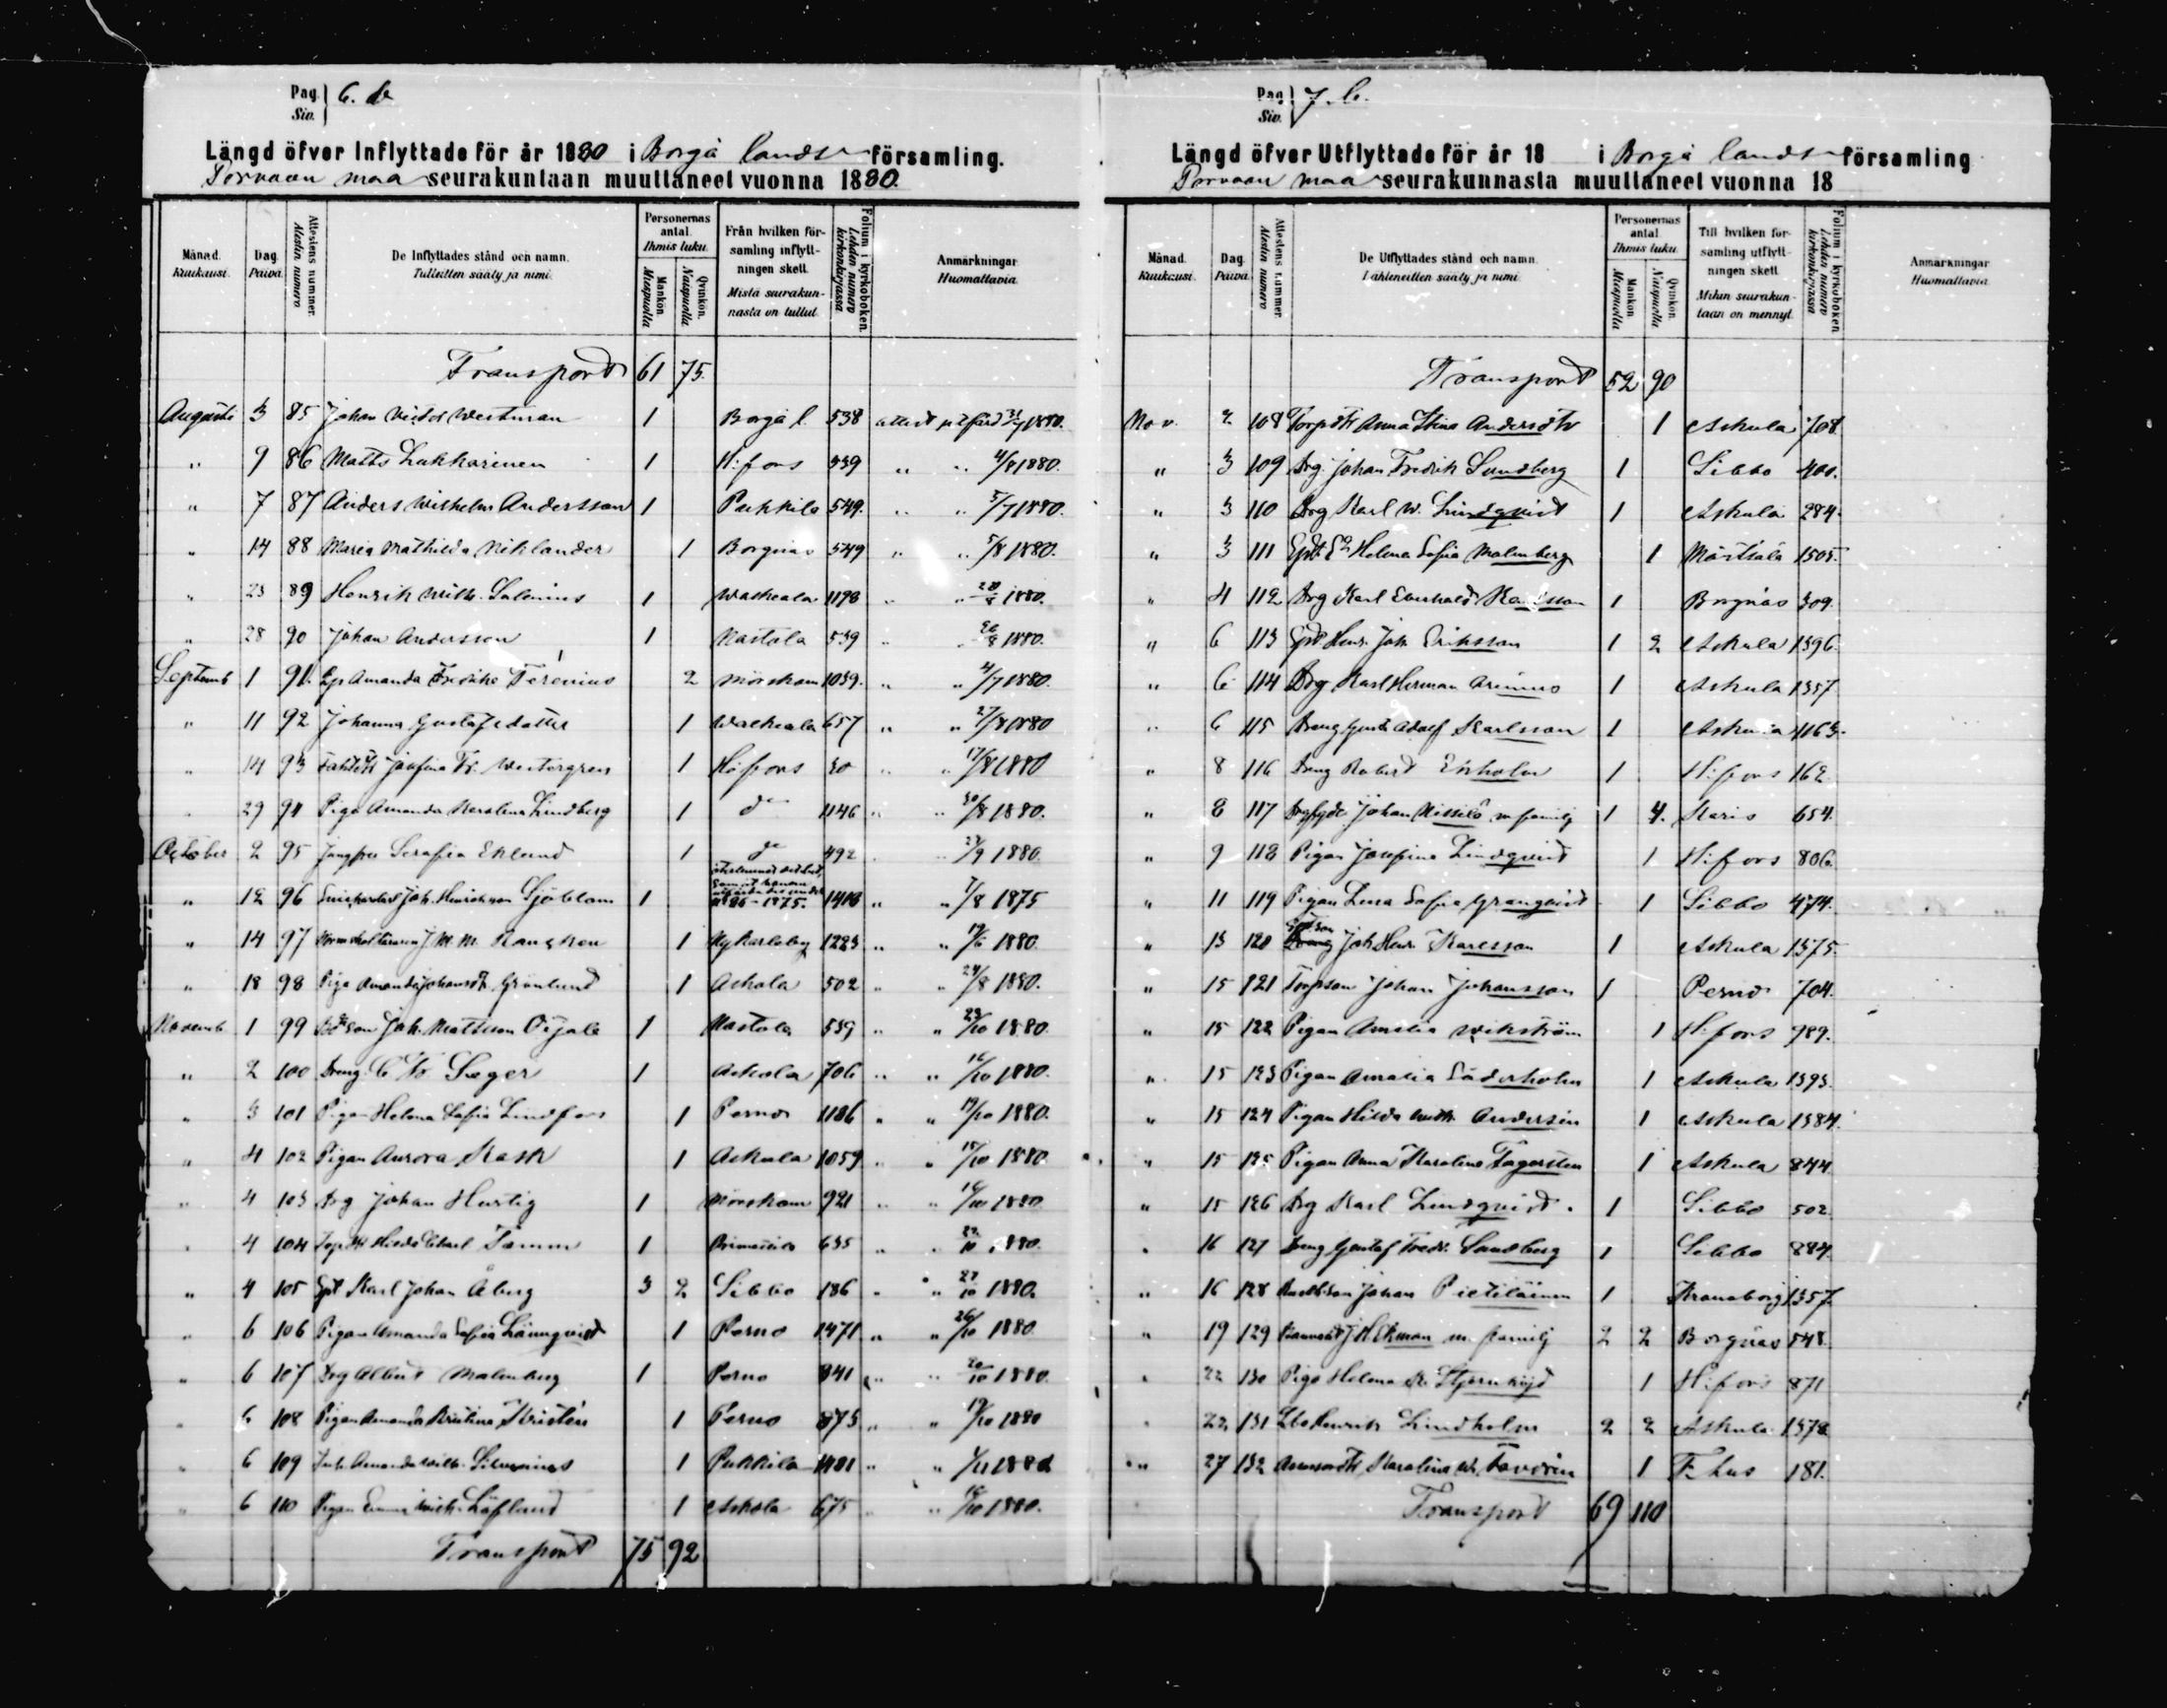 Pag. Siv. 6. b
Längd öfver Inflyttade för år 1880 i Borgå lands församling.
Porvoon maa seurakuntaan muuttaneet vuonna 1880.
Månad. Kuukausi. | Dag. Päivä. | Attestens nummer. Atestin numero | De Inflyttades stånd och namn. Tulleitten sääty ja nimi. | Personernas antal. Ihmis luku. Mankön. Miespuolia | Qvinkön. Naispuolia | Från hvilken församling inflyttningen skett. Mistä seurakunnasta on tullut. | Folium i kyrkoboken. Lehden numero kirkonkirjassa | Anmärkningar. Huomattavia.
Transport 61 75.
Augusti 3 85 Johan Westman 1 Borgå l. 538 attest utfärd 31/7 1880.
" 9 86 Matts Lukkarinen 1 H:fors 339 " " 4/8 1880.
" 7 87 Anders Wilhelm Andersson 1 Pukkila 549. " " 5/7 1880.
" 14 88 Maria Mathilda Niklander 1 Borgnäs 549 " " 5/8 1880.
" 23 89 Henrik Wilh. Salenius 1 Walkeala 1198 " " 20/8 1880.
" 28 90 Johan Andersson 1 Nastola 539 " 26/8 1880.
Septemb 1 91. Amanda Fredrika Terenius 2 Mörskom 1039. " " 4/7 1880.
" 11 92 Johanna Gustafsdotter 1 Walkeala 657 " " 27/8 1880
" 14 93 Josefina Westergren 1 H:fors 30 " " 17/8 1880
" 29 94 Piga Amanda Karolina Lindberg 1 do 1146 " " 30/8 1880.
October 2 95 Jungfru Serafia Eklund 1 do 492 " 29/9 1880.
" 12 96 Joh. Henriksson Sjöblom 1 No 26-1875. 1418 " " 7/8 1875
" 14 97 J. M. M. Kangken 1 Nykarleby 1223 " " 19/6 1880.
" 18 98 Piga Amanda Johansdt. Grönlund 1 Askola 502 " " 24/8 1880.
Novemb 1 99 Joh. Mattsson Ojala 1 Nastola 539 " " 23/10 1880.
" 2 100 Dreng C. W. Seger 1 Askola 706 " " 16/10 1880.
" 3 101 Pigan Helena Sofia Lindfors 1 Perno 1186 " " 19/10 1880.
" 4 102 Pigan Aurora Kask 1 Askola 1059 " " 15/10 1880.
" 4 103 Drg Johan Hurtig 1 Mörskom 921 " " 16/10 1880
" 4 104 Tamm 1 635 " " 22/10 1880.
" 4 105 Karl Johan Åberg 3 2 Sibbo 186 " " 27/10 1880.
" 6 106 Pigan Amanda Sofia Lönnqvist 1 Perno 1471 " " 26/10 1880.
" 6 107 Drg Albert Malmberg 1 Perno 941 " " 20/10 1880.
" 6 108 Pigan Amanda Kristina Kristén 1 Perno 873 " " 19/10 1880
" 6 109 Amanda Wilh. 1 Pukkila 1401 " " 4/11 1880
" 6 110 Pigan Emma Löfland 1 Askola 675 " 18/10 1880.
Transport 75 92
Pag. Siv. 7. b.
Längd öfver Utflyttade för år 18 i Borgå lands församling
Porvoon maa seurakunnasta muuttaneet vuonna 18
Månad. Kuukausi. | Dag. Päivä. | Attestens nummer. Atestin numero | De Utflyttades stånd och namn. Lähteneitten sääty ja nimi. | Personernas antal. Ihmis luku. Mankön. Miespuolia | Qvinkön. Naispuolia | Till hvilken församling utflyttningen skett. Mihin seurakuntaan on mennyt. | Folium i kyrkoboken. Lehden numero kirkonkirjassa | Anmärkningar. Huomattavia.
Transport 52 90
Nov. 2 108 Torpdtr Anna Stina Andersdtr 1 Askula 708.
" 3 109 Drg. Johan Fredrik Sundberg 1 Sibbo 400.
" 3 110 Drg Karl W. Lindqvist 1 Askula 284.
" 3 111 Helena Sofia Malmberg 1 Mäntsälä 1505.
" 4 112 Drg Karl Karlsson 1 Borgnäs 309.
" 6 113 Henr. Joh. Eriksson 1 2 Askula 1396.
" 6 114 Drg Karl Herman Arenius 1 Askula 1357.
" 6 115 Dreng Gust. Adolf Karlsson 1 Askula 1163.
" 8 116 Dreng Robert Ekholm 1 H:fors 162
" 8 117 Johan Nissilä m familj 1 4. Karis 654.
" 9 118 Pigan Josefina Lindqvist 1 H:fors 806.
" 11 119 Pigan Lena Sofia Granqvist 1 Sibbo 474.
" 13 120 Joh. Henr. Karlsson 1 Askula 1375.
" 15 121 Torpson Johan Johansson 1 Perno 704.
" 15 122 Pigan Amalia Wikström 1 H:fors 989.
" 15 123 Pigan Amalia Söderholm 1 Askula 1393.
" 15 124 Pigan Hilda Math. Andersin 1 Askula 1384.
" 15 125 Pigan Anna Karolina Fagersten 1 Askula 844.
" 15 126 Drg Karl Lindqvist. 1 Sibbo 502.
" 16 127 Dreng Gustaf Fredr. Sandberg 1 Sibbo 884.
" 16 128 Johan Pietiläinen 1 Kronoborg 1357.
" 19 129 J. H. Ekman m. familj 2 2 Borgnäs 548.
" 22 130 Piga Helena 1 H:fors 871
" 22 131 Henrik Lindholm 2 2 Askula 1378
" 27 132 Karolina W. Favorin 1 F. hus 181.
Transport 69 110